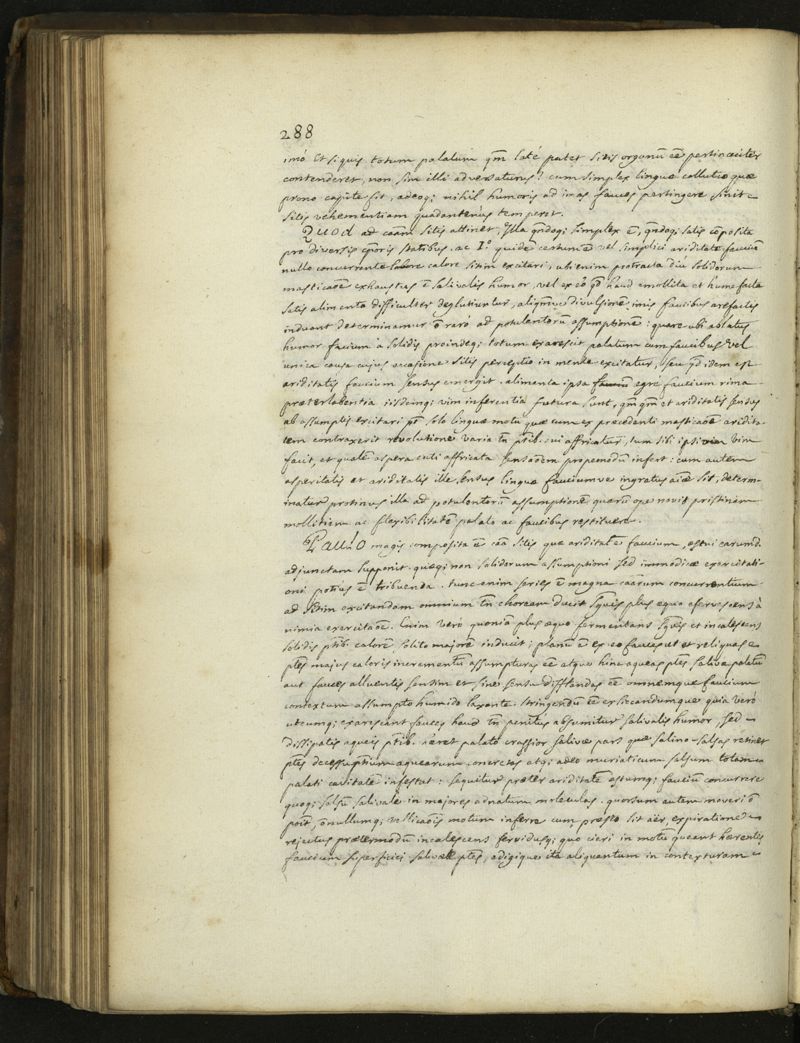 288
imó et siquis totum palatum qm̄ laté patet sitis organū eē pertinaciter
contenderet, non sim illi adversaturus! cum simplex linguæ collutio quæ
prono capite fit, adeoq; nihil humoris ad imas fauces pertingere sinit
sitis vehementiam quadantenùs temperet.
Quod ad caām sitis attinet, illa qn̄doq; simplex ē, qn̄doq; satis cōposita
pro diversis cp̄oris statibus. ac 1.º quidē certum ē vel simplici ariditate faucium
nullo concurrente calore sitim excitari, ubi enim protracta diu solidorum
masticaōe exhaustus ē salivalis humor, vel ex eo qd̄ haud emollita et humefacta
satis alimenta difficulter deglutiuntur, aliqm̄ve divulsionē imis faucibus arefactis
inducant determinamur ō raró ad potulentorū assumptionē: quare ubi ablatus
humor faucium a solidis proindeq; totum exarescit palatum cum faucibus vel
unica causa cujus occasione sitis perceptio in mente excitatur, seu qd̄ idem est
ariditatis faucium sensus emergit. alimenta ipsa egré faucium rima
præterlabentia iisdemq; vim inferentia futura sunt, qm̄ et ariditatis sensus
ab assumptis excitari pt̄ solo linguæ motu quæ cum ex precedenti masticaōe aridita-
tem contraxerit revolutione varia in ptib. sui affricatur, tum sibi ipsi vim
facit, et qualē aspera cuti affricata sensaōem propemodū infert: cum autem
asperitatis et ariditatis ille sensus linguæ fauciumve ingratus aīæ sit, determi-
natur protinus illa ad potulentorū assumptionē quorū ope novit pristinam
mollitiem ac flexibilitatē palato ac faucibus restituere.
magis composita ē caā sitis quæ ariditatē faucium, æstui earumd.
adjunctam supponit. quæq; non solidorum assumptioni sed immodicæ exercitati-
oni potiùs ē tribuenda. tunc enim series ē magna caārum concurrentium
ad sitim excitandam omnium tn̄ choream ducit sg̃uis plus æquo efervescens à
nimia exercitaōe. Cum veró quoniā plus æquo fermentans sg̃uis et incalescens
solidis ptib. calorē solito majorē inducit; planū ē ex eo fauces et reliquas
ptēs majus caloris incrementū assumpturas eē atque hinc aqueas ptēs salivæ palatū
aut fauces alluentis sensim et sine sensu difflandas eē omnemque faucium
contextum assumpto humido laxante stringendū eē exsiccandumque quia veró
utcumq; exarescant fauces haud tn̄ penitus absumitur salivalis humor, sed
dissipatis aqueis ptib. hæret palato crassior salivæ pars quæ salino-salsas retinet
ptēs aquearum. onerctas atq; adeo muriaticum salsum totam
palati cavitatē infestat: sequitur præter ariditatē æstumq; fauciū concurrere
quoq; salsū salivale in majores adnatum moleculas. quorsum autem moveri ō
poīt, ō nullumq; vellicaōis motum inferre cum præsto sit aër, expiratione
rejectus prætermodū incalescens fervidusq; quo cieri in motū queant hærentes
faucium superficiei salivæ ptēs, adigique ita aliquantum in contexturam